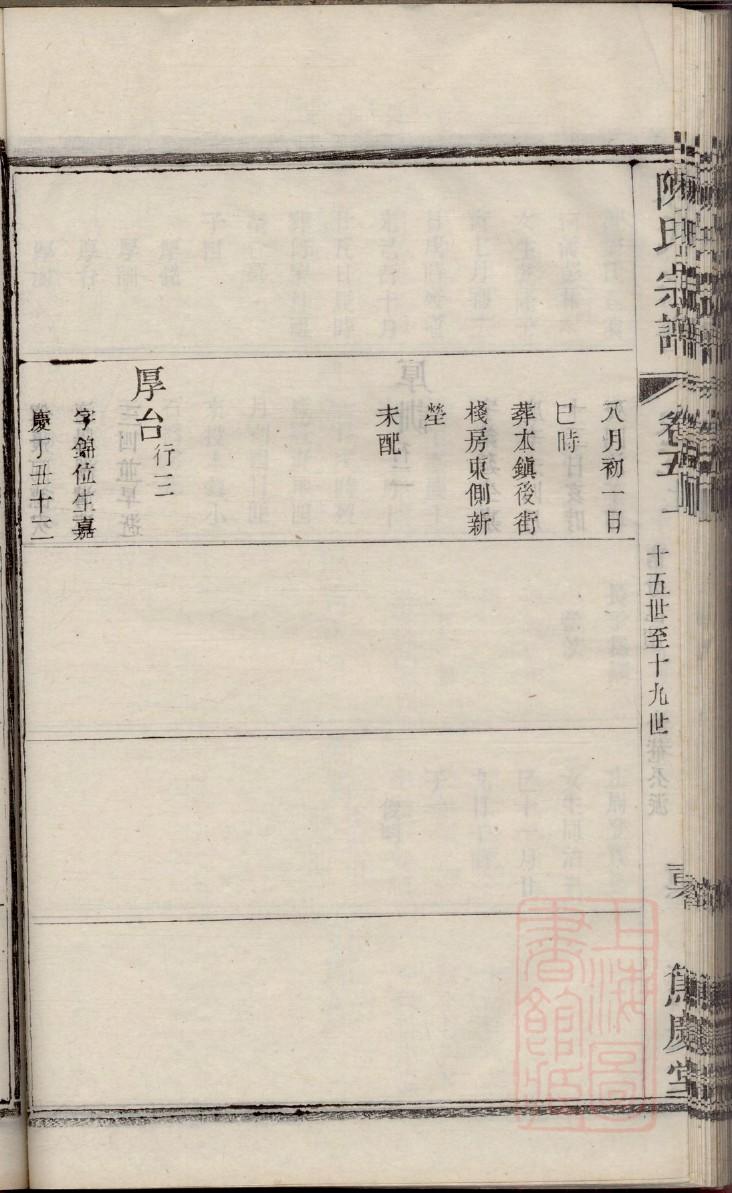 陳氏宗譜
卷五
十五世至十九世
慶堂
八月初一日
巳時
葬本鎮後街
棧房東側新
塋
未配
厚台 行三
字錦位生嘉
慶丁丑十二
上海圖
書館藏